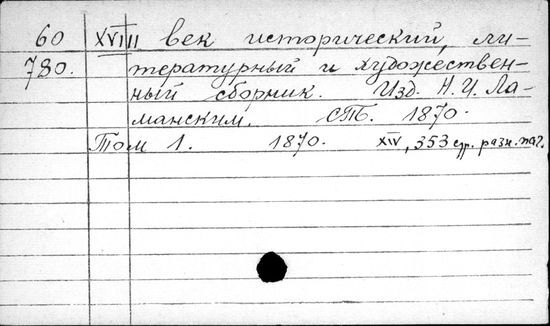 60 XVIII век исторический, ли-
780. тературный и художествен-
ный сборник. Изд. Н. И. Ла-
манским. СПб. 1870.
Том 1. 1870. XIV, 353 стр. разн. паг.